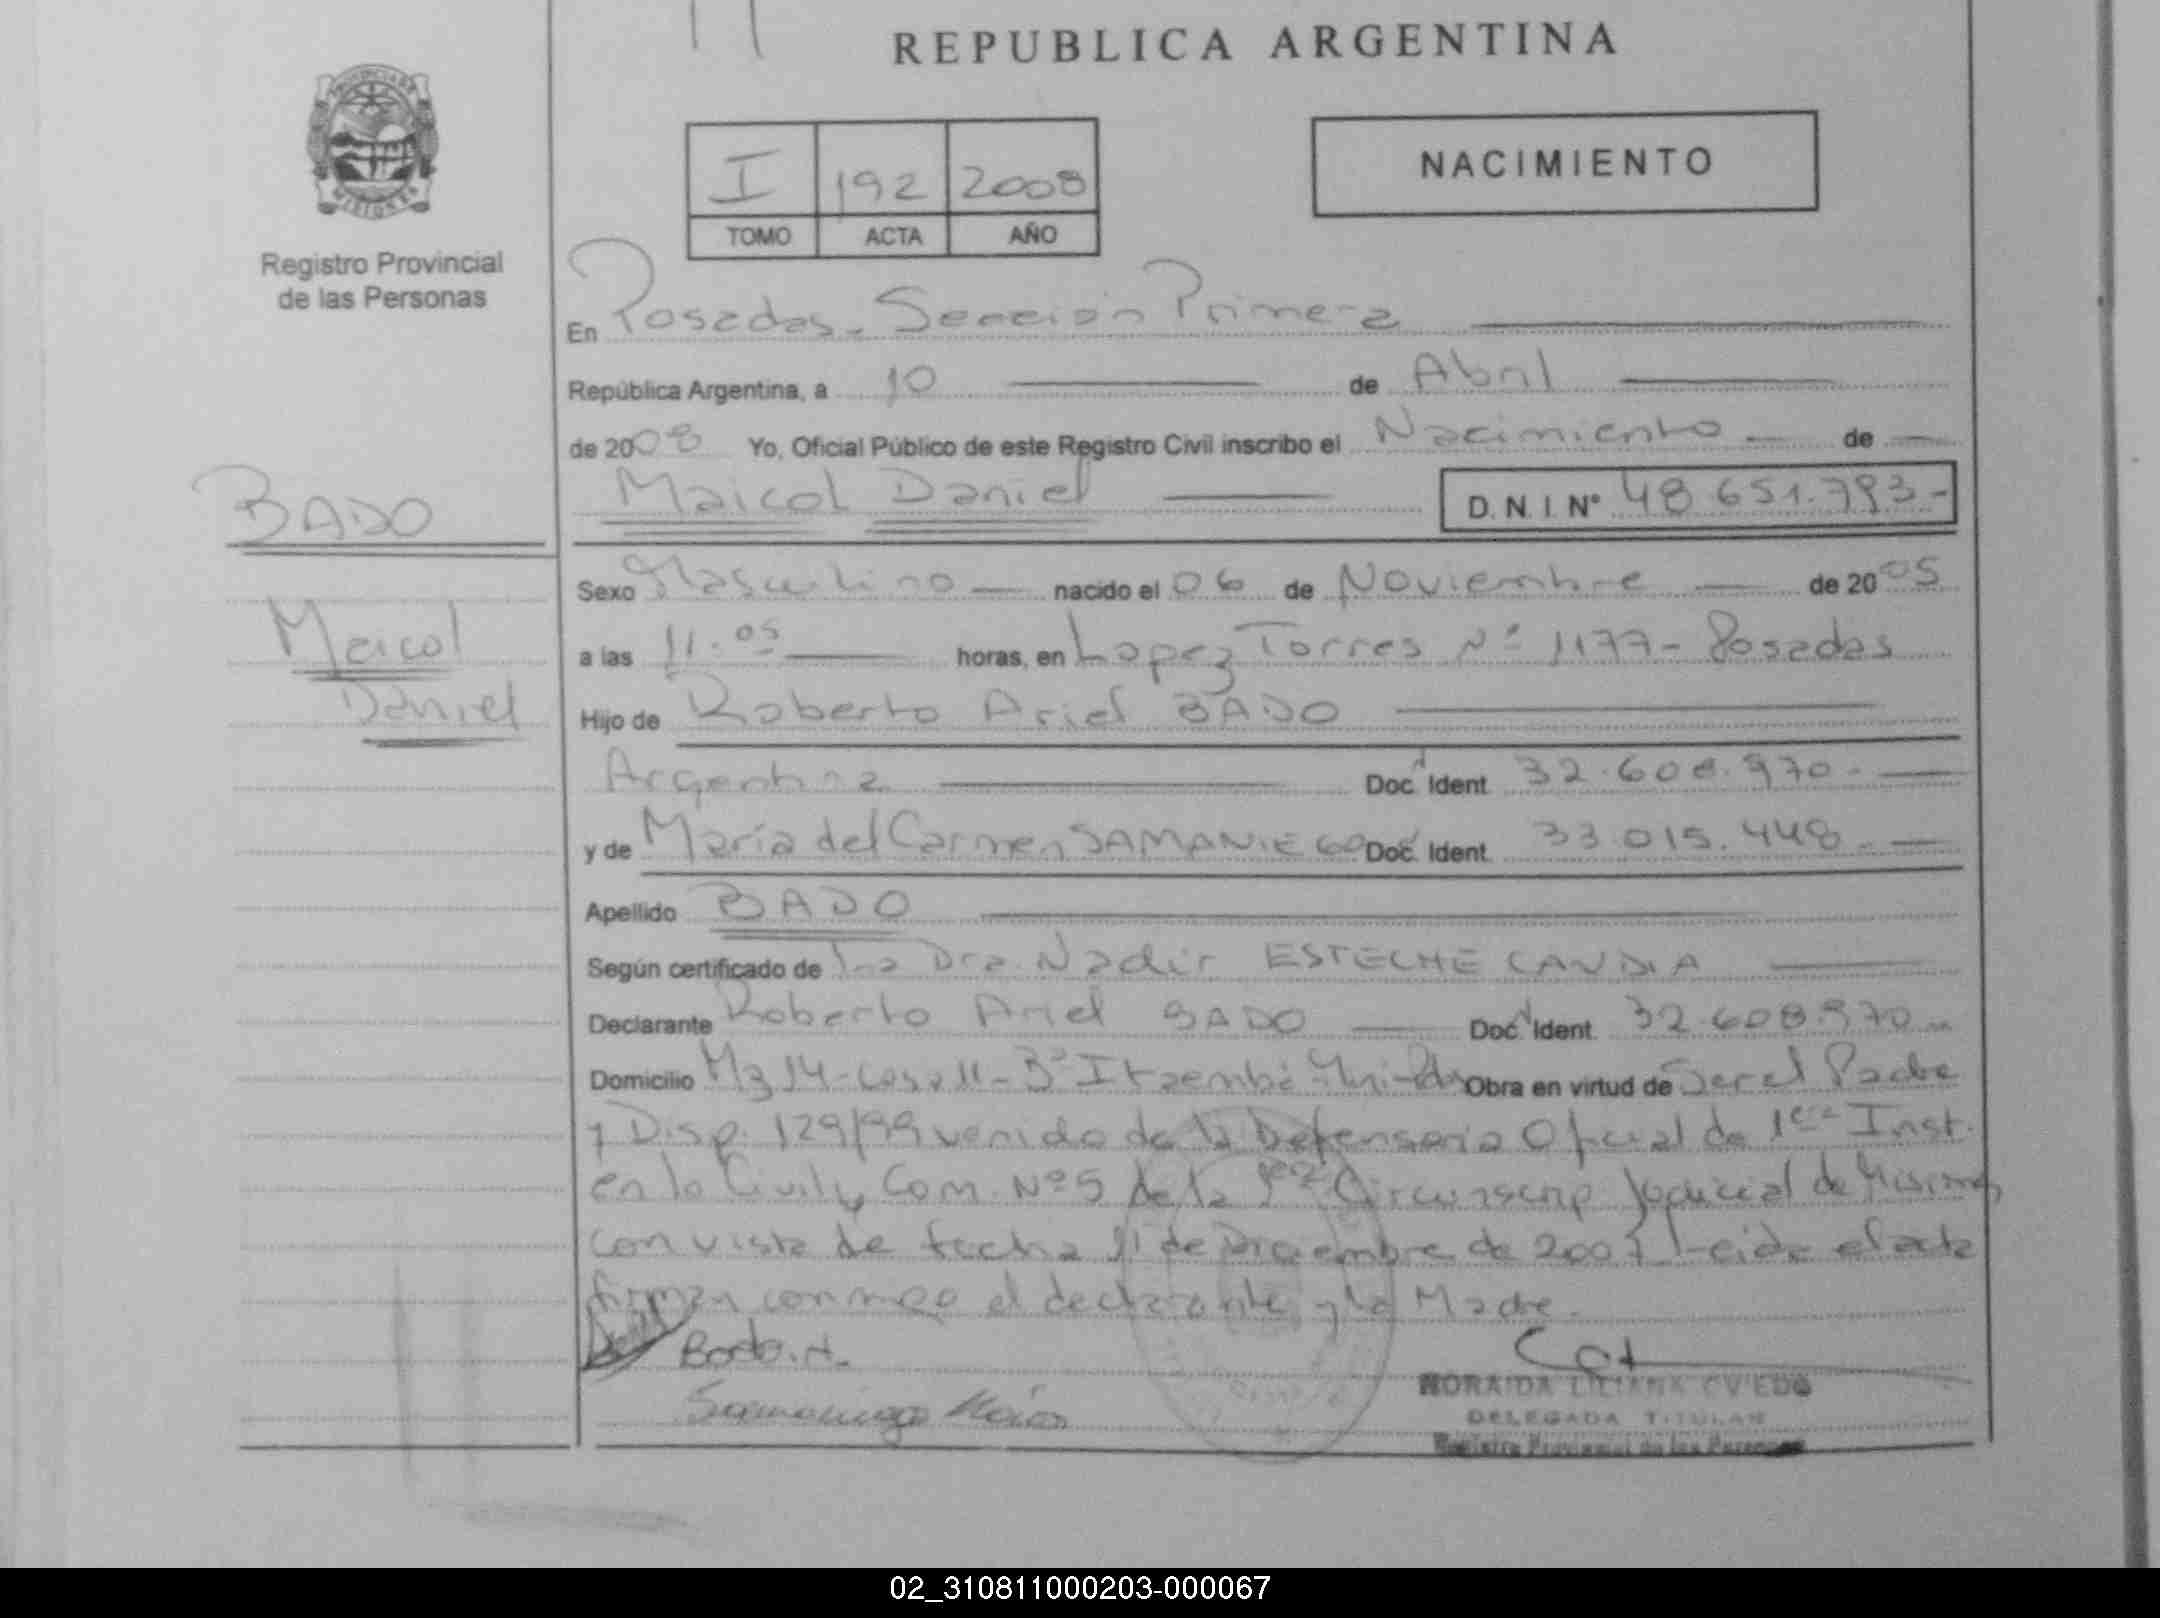 REPUBLICA ARGENTINA
PROVINCIA DE
MISIONES
Registro Provincial
de las Personas
I 192 2008
TOMO ACTA AÑO
NACIMIENTO
En Posadas - Sección Primera
República Argentina, a 10 de Abril
de 2008 Yo, Oficial Público de este Registro Civil inscribo el Nacimiento de
Maicol Daniel D.N.I Nº 48.651.793-
BADO
Maicol
Daniel
Sexo Masculino nacido el 06 de Noviembre de 2005
a las 11.05 horas, en Lopez Torres Nº 1177 - Posadas
Hijo de Roberto Ariel BADO
Argentina Doc. Ident. 32.608.970.-
y de María del Carmen SAMANIEGO Doc. Ident. 33.015.448.-
Apellido BADO
Según certificado de la Dra. Nadir ESTECHE CANDIA
Declarante Roberto Ariel BADO Doc. Ident. 32.608.970.-
Domicilio Mz 14 - casa 11 - Bº Itaembé Miní - Pdas Obra en virtud de Ser el Padre
y Disp. 129/99 venido de la Defensoria Oficial de 1era Inst.
en lo Civil y Com. Nº 5 de la 1era Circunscrip. Judicial de Misiones
con vista de fecha 11 de Diciembre de 2007 Leida el acta
firman conmigo el declarante y la Madre.
Bado.
Samaniego María
NORAIDA LILIANA OVIEDO
DELEGADA TITULAR
Registro Provincial de las Personas
02_310811000203-000067